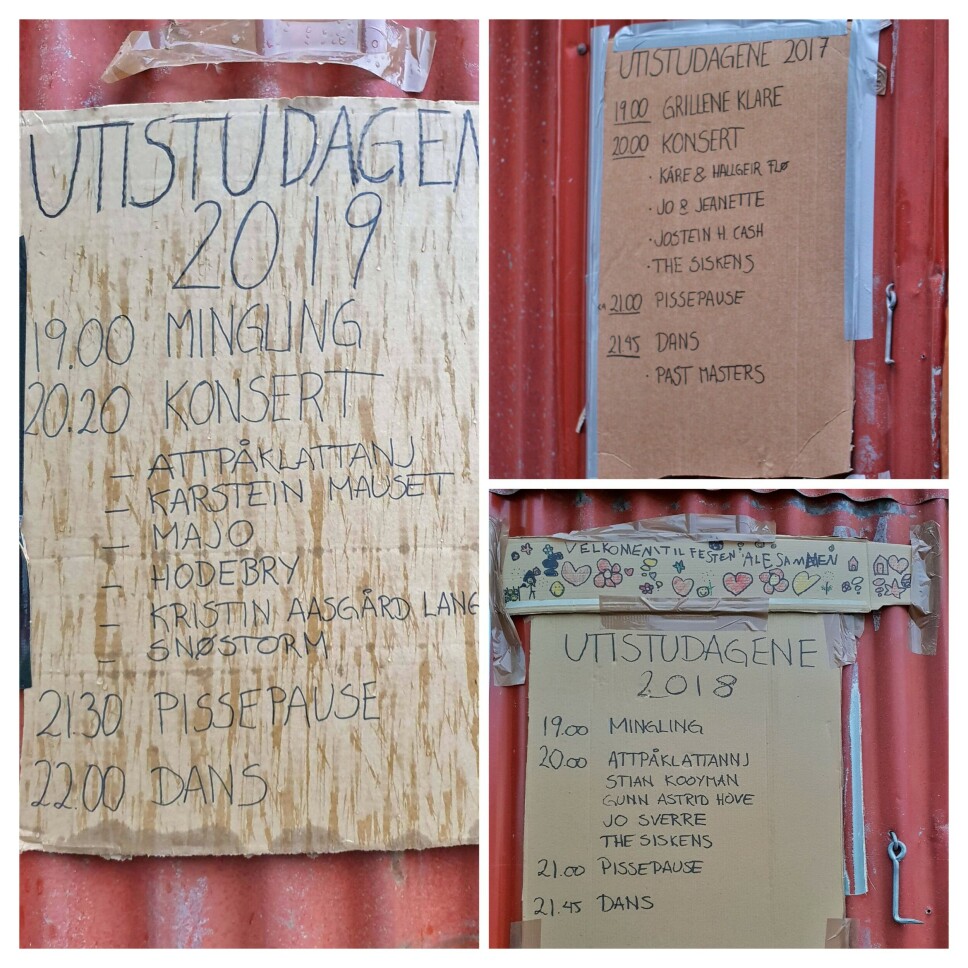 UTISTUDAGEN
2019
19.00 MINGLING
20.20 KONSERT
– ATTPÅKLATTANJ
– KARSTEIN MAUSET
– MAJO
– HODEBRY
– KRISTIN AASGÅRD LANG
– SNØSTORM
21.30 PISSEPAUSE
22.00 DANS
UTISTUDAGENE 2017
19.00 GRILLENE KLARE
20.00 KONSERT
· KÅRE & HALLGEIR FLØ
· JO & JEANETTE
· JOSTEIN H. CASH
· THE SISKENS
21.00 PISSEPAUSE
21.45 DANS
· PAST MASTERS
VELKOMEN TIL FESTEN ALE SAMMEN
UTISTUDAGENE
2018
19.00 MINGLING
20.00 ATTPÅKLATTANNJ
STIAN KOOYMAN
GUNN ASTRID HOVE
JO SVERRE
THE SISKENS
21.00 PISSEPAUSE
21.45 DANS